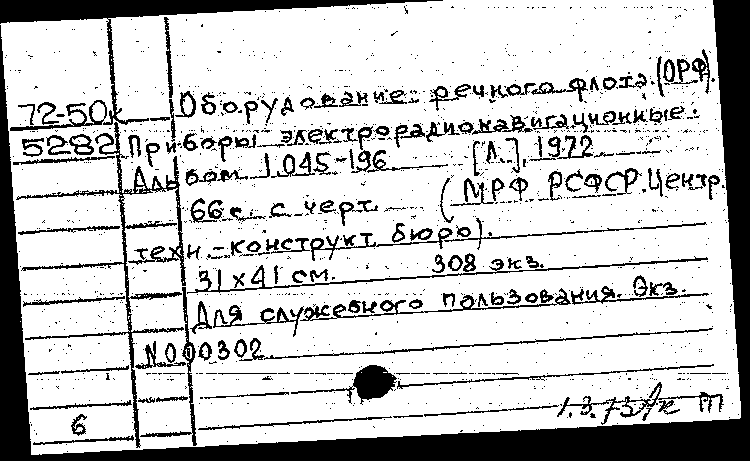 72-50к Оборудование речного флота. (ОРФ).
5282 Приборы электрорадионавигационные.
Альбом 1.045-196. [Л.], 1972.
66 с. с черт. (МРФ РСФСР. Центр.
техн.-конструкт. бюро).
31х41 см. 308 экз.
Для служебного пользования. Экз.
N000302.
6 1.3.73